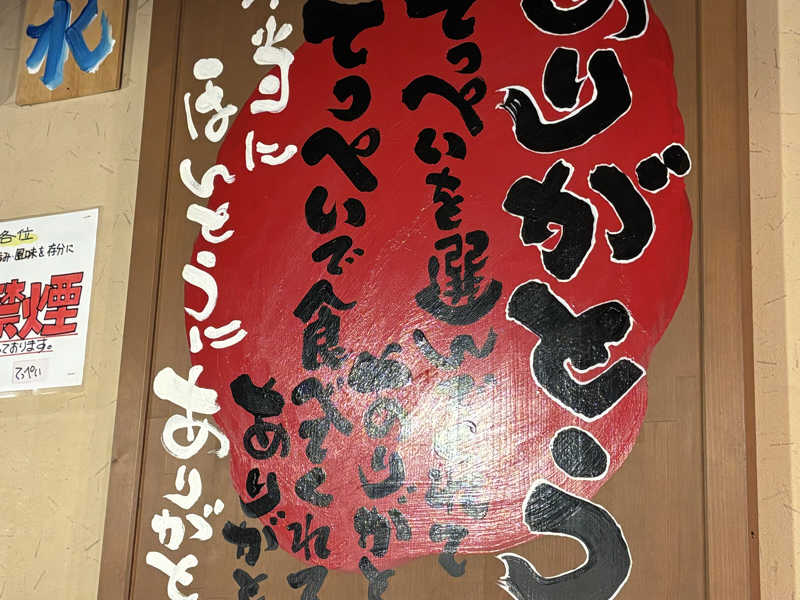 ありがとう
てっぺいを選んでくれて
ありがと
てっぺいで食べてくれて
ありがと
本当に
ほんとうに
ありがと
水
各位
風味を存分に
禁煙
っております。
てっぺい